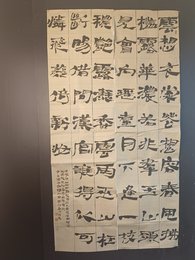 雲想衣裳花想容春風拂
檻露華濃若非群玉山頭
見會向瑤臺月下逢一枝
紅艷露凝香雲雨巫山枉
斷腸借問漢宮誰得似可
憐飛燕倚新妝